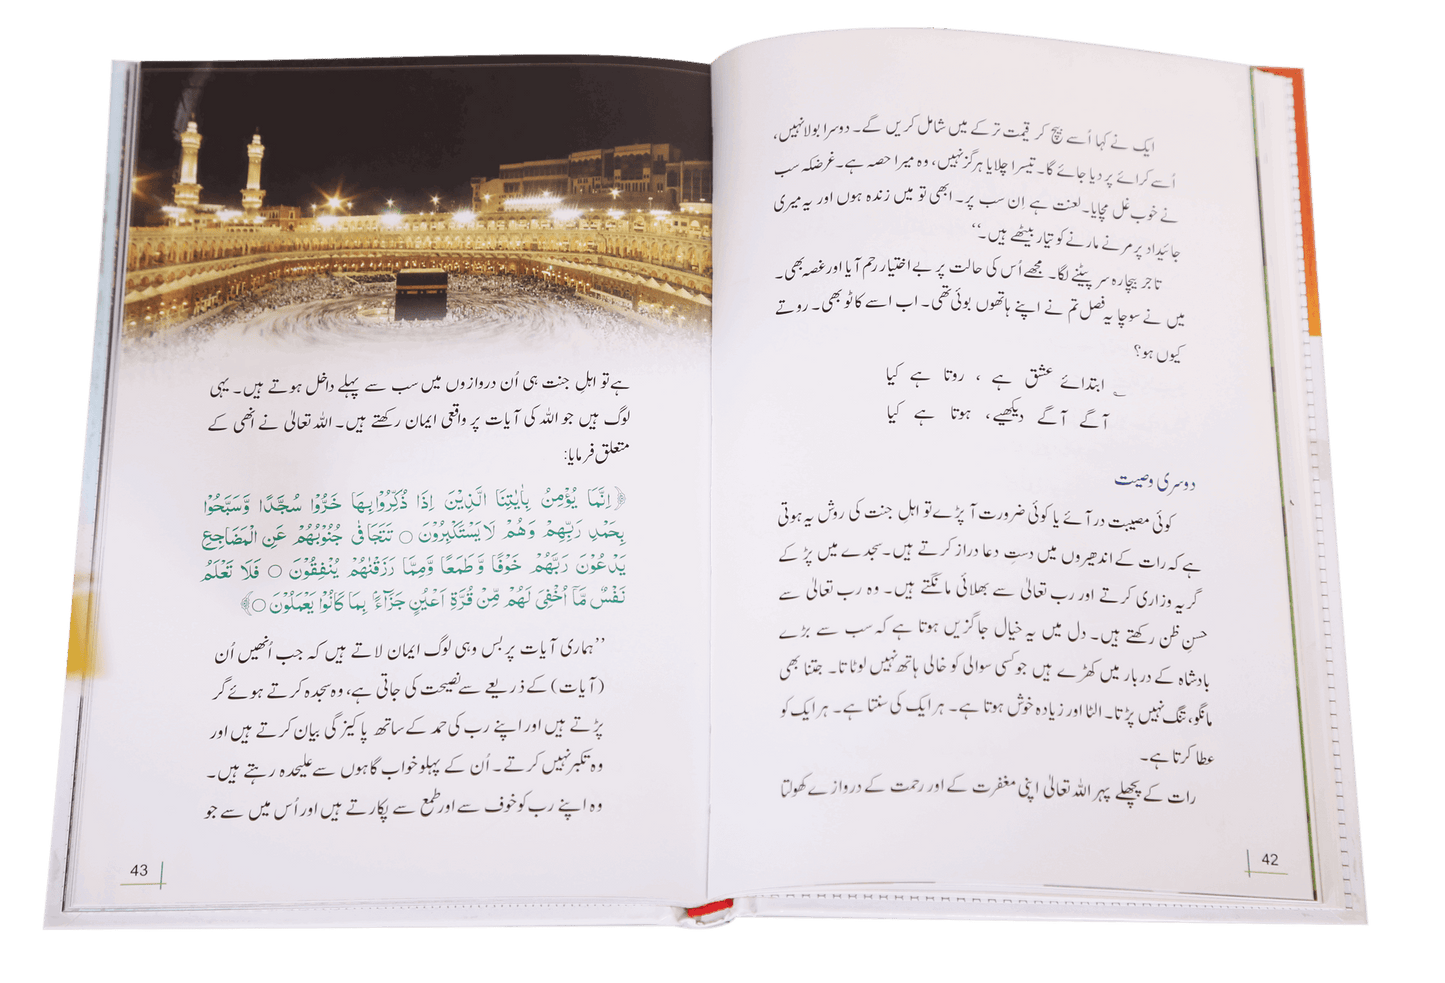 ایک نے کہا اُسے بیچ کر قیمت ترکے میں شامل کریں گے۔ دوسرا بولا نہیں،
اُسے کرائے پر دیا جائے گا۔ تیسرا چلایا ہرگز نہیں، وہ میرا حصہ ہے۔ غرضکہ سب
نے خوب غل مچایا۔ لعنت ہے اِن سب پر۔ ابھی تو میں زندہ ہوں اور یہ میری
جائیداد پر مرنے مارنے کو تیار بیٹھے ہیں۔‘‘
تاجر بیچارہ سر پیٹنے لگا۔ مجھے اُس کی حالت پر بے اختیار رحم آیا اور غصہ بھی۔
میں نے سوچا یہ فصل تم نے اپنے ہاتھوں بوئی تھی۔ اب اسے کاٹو بھی۔ روتے
کیوں ہو؟
ابتدائے عشق ہے ، روتا ہے کیا
آگے آگے دیکھیے، ہوتا ہے کیا
دوسری وصیت
کوئی مصیبت در آئے یا کوئی ضرورت آ پڑے تو اہلِ جنت کی روش یہ ہوتی
ہے کہ رات کے اندھیروں میں دستِ دعا دراز کرتے ہیں۔ سجدے میں پڑ کے
گریہ وزاری کرتے اور رب تعالیٰ سے بھلائی مانگتے ہیں۔ وہ رب تعالیٰ سے
حسنِ ظن رکھتے ہیں۔ دل میں یہ خیال جاگزیں ہوتا ہے کہ سب سے بڑے
بادشاہ کے دربار میں کھڑے ہیں جو کسی سوالی کو خالی ہاتھ نہیں لوٹاتا۔ جتنا بھی
مانگو، تنگ نہیں پڑتا۔ الٹا اور زیادہ خوش ہوتا ہے۔ ہر ایک کی سنتا ہے۔ ہر ایک کو
عطا کرتا ہے۔
رات کے پچھلے پہر اللہ تعالیٰ اپنی مغفرت کے اور رحمت کے دروازے کھولتا
42
ہے تو اہلِ جنت ہی اُن دروازوں میں سب سے پہلے داخل ہوتے ہیں۔ یہی
لوگ ہیں جو اللہ کی آیات پر واقعی ایمان رکھتے ہیں۔ اللہ تعالیٰ نے انھی کے
متعلق فرمایا:
﴿اِنَّمَا يُؤْمِنُ بِاٰيٰتِنَا الَّذِيْنَ اِذَا ذُكِّرُوْا بِهَا خَرُّوْا سُجَّدًا وَّسَبَّحُوْا
بِحَمْدِ رَبِّهِمْ وَهُمْ لَا يَسْتَكْبِرُوْنَ ○ تَتَجَافٰى جُنُوْبُهُمْ عَنِ الْمَضَاجِعِ
يَدْعُوْنَ رَبَّهُمْ خَوْفًا وَّطَمَعًا وَّمِمَّا رَزَقْنٰهُمْ يُنْفِقُوْنَ ○ فَلَا تَعْلَمُ
نَفْسٌ مَّآ اُخْفِيَ لَهُمْ مِّنْ قُرَّةِ اَعْيُنٍ جَزَآءًۢ بِمَا كَانُوْا يَعْمَلُوْنَ ○﴾
’’ہماری آیات پر بس وہی لوگ ایمان لاتے ہیں کہ جب اُنھیں اُن
(آیات) کے ذریعے سے نصیحت کی جاتی ہے، وہ سجدہ کرتے ہوئے گر
پڑتے ہیں اور اپنے رب کی حمد کے ساتھ پاکیزگی بیان کرتے ہیں اور
وہ تکبر نہیں کرتے۔ اُن کے پہلو خواب گاہوں سے علیحدہ رہتے ہیں۔
وہ اپنے رب کو خوف سے اور طمع سے پکارتے ہیں اور اُس میں سے جو
43